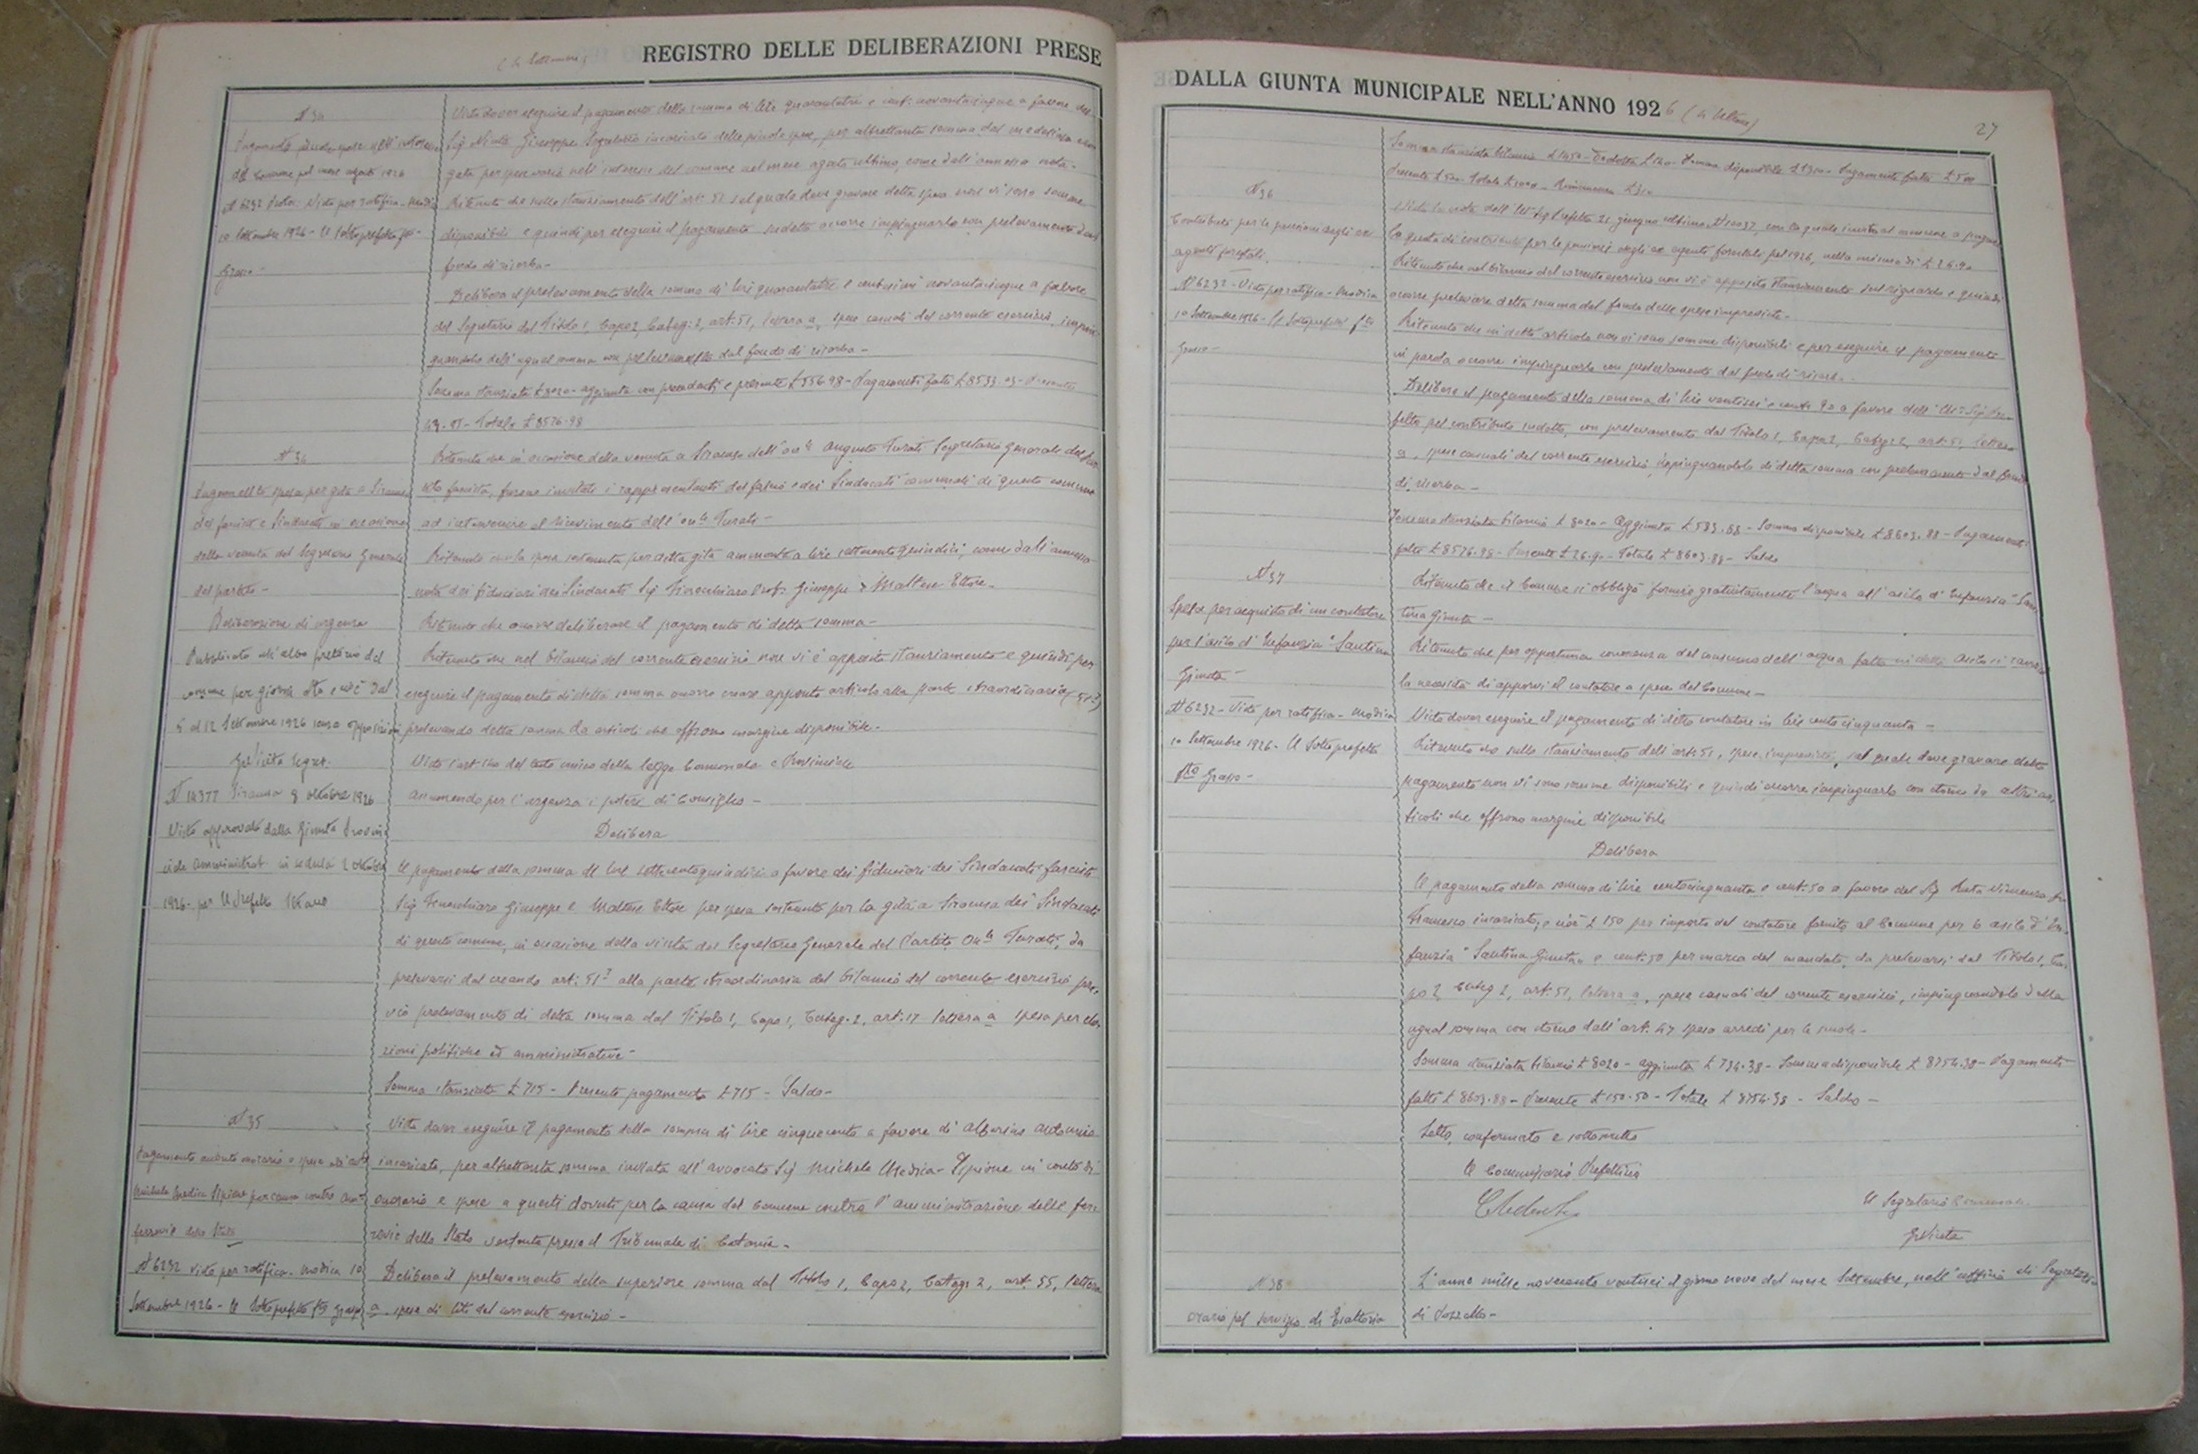 REGISTRO DELLE DELIBERAZIONI PRESE
Visto dover eseguire il pagamento della somma di lire quarantatre e cent. novantacinque a favore del
Sig. Giuseppe Segretario incaricato delle piccole spese, per altrettanta somma dal medesimo ero-
gata per spese varie nell'interesse del comune nel mese agosto ultimo, come dall'annessa nota-
Ritenuto che nello stanziamento dell'art. 51 sul quale deve gravare detta spesa non vi sono somme
disponibili e quindi per eseguire il pagamento sudetto occorre impinguarlo con prelevamento dal
fondo di riserba-
Delibera il prelevamento della somma di lire quarantatre e centesimi novantacinque a favore
del Segretario dal Titolo 1, Capo 2, Categ. 2, art. 51, lettera a, spese casuali del corrente esercizio, impin-
guandolo dell'egual somma con prelevamento dal fondo di riserba-
Somma stanziata £ 8020- aggiunta con precedenti e presente £ 556.98- Pagamenti fatti £ 8533.03- Presente
43.95- Totale £ 8576.98
Pagamento piccole spese nell'interesse
del Comune pel mese agosto 1926
N 6232 Visto per ratifica- Modica
10 Settembre 1926- Il Sottoprefetto fto
Grasso-
Ritenuto che in occasione della venuta a Siracusa dell'on.le Augusto Turati Segretario Generale del Par-
tito fascista, furono invitati i rappresentanti del fascio e dei Sindacati comunali di questo comune
ad intervenire al ricevimento dell'on.le Turati-
Ritenuto che la spesa sostenuta per detta gita ammonta a lire settecentoquindici, come dall'annessa
nota dei fiduciari dei Sindacati Sig. Finocchiaro Prof. Giuseppe e Maltese Ettore-
Ritenuto che occorre deliberare il pagamento di detta somma-
Ritenuto che nel bilancio del corrente esercizio non vi è apposito stanziamento e quindi per
eseguire il pagamento di detta somma occorre creare apposito articolo alla parte straordinaria
prelevando detta somma da articoli che offrono margine disponibile.
Visto l'art. 140 del testo unico della legge Comunale e Provinciale
assumendo per l'urgenza i poteri di Consiglio-
Delibera
Il pagamento della somma di lire settecentoquindici a favore dei fiduciari dei Sindacati fascisti
Sig. Finocchiaro Giuseppe e Maltese Ettore per spesa sostenuta per la gita a Siracusa dei Sindacati
di questo comune, in occasione della visita del Segretario Generale del Partito On.le Turati, da
prelevarsi dal creando art. 51 alla parte straordinaria del bilancio del corrente esercizio pre-
vio prelevamento di detta somma dal Titolo 1, Capo 1, Categ. 2, art. 17 lettera a spesa per ele-
zioni politiche ed amministrative-
Somma stanziata £ 715- Presente pagamento £ 715- Saldo-
N 34
Pagamento spesa per gita a Siracusa
del fascio e Sindacati in occasione
della venuta del Segretario Generale
del partito-
Deliberazione di urgenza
Pubblicata all'albo pretorio del
comune per giorni otto cioè dal
5 al 12 Settembre 1926 senza opposizioni
Segret.
N 14377 Siracusa 9 ottobre 1926
Visto approvato dalla Giunta Provin-
ciale Amministrat. in seduta 2 ottobre
1926- per Il Prefetto
N 35
Visto dover eseguire il pagamento della somma di lire cinquecento a favore di Antonino
incaricato, per altrettanta somma inviata all'avvocato Sig. Michele Modica- Scipione in conto di
onorario e spese a questi dovute per la causa del Comune contro l'amministrazione delle fer-
rovie dello Stato vertente presso il Tribunale di Catania-
Delibera il prelevamento della superiore somma dal Titolo 1, Capo 2, Categ. 2, art. 55, lettera
a, spese di liti del corrente esercizio-
Pagamento acconto onorario e spese all'avv.
Michele Modica Scipione per causa contro Amm.
ferrovie dello Stato
N 6232 visto per ratifica. Modica 10
Settembre 1926- Il Sottoprefetto fto Grasso
DALLA GIUNTA MUNICIPALE NELL'ANNO 1926
27
Somma stanziata bilancio £ 1450- Dedotta £ 120- Somma disponibile £ 1310- Pagamento fatto £ 500
Presente £ 500- Totale £ 1000- Rimanenza £ 310
N 36
Contributo per le pensioni degli ex
agenti forestali.
N 6232- Visto per ratifica- Modica
10 Settembre 1926- Il Sottoprefetto fto
Grasso-
Vista la nota dell'Ill. Sig. Prefetto 21 giugno ultimo, N 10037, con la quale invita il comune a pagare
la quota di contributo per le pensioni degli ex agenti forestali pel 1926, nella misura di £ 26.90
Ritenuto che nel bilancio del corrente esercizio non vi è apposito stanziamento sul riguardo e quindi
occorre prelevare detta somma dal fondo delle spese impreviste-
Ritenuto che in detto articolo non vi sono somme disponibili e per eseguire il pagamento
in parola occorre impinguarlo con prelevamento dal fondo di riserba-
Delibera il pagamento della somma di lire ventisei e cent. 90 a favore dell'Ill. Sig. Pre-
fetto pel contributo sudetto, con prelevamento dal Titolo 1, Capo 2, Categ. 2, art. 51, lettera
a, spese casuali del corrente esercizio impinguandolo di detta somma con prelevamento dal fondo
di riserba-
Somma stanziata bilancio £ 8020- Aggiunta £ 583.88- Somma disponibile £ 8603.88- Pagamenti
fatti £ 8576.98- Presente £ 26.90- Totale £ 8603.88- Saldo
N 37
Spesa per acquisto di un contatore
per l'asilo d'Infanzia "Santina
Giunta"-
N 6232- Visto per ratifica- Modica
10 Settembre 1926- Il Sottoprefetto
fto Grasso-
Ritenuto che il Comune si obbligò fornire gratuitamente l'acqua all'asilo d'Infanzia "San-
tina Giunta-
Ritenuto che per opportuna conoscenza del consumo dell'acqua fatto in detto asilo si
la necessità di apporvi il contatore a spese del Comune-
Visto dover eseguire il pagamento di detto contatore in lire cento cinquanta-
Ritenuto che sullo stanziamento dell'art. 51, spese impreviste, sul quale deve gravare detto
pagamento non vi sono somme disponibili e quindi occorre impinguarlo con storno da altri ar-
ticoli che offrono margine disponibile
Delibera
Il pagamento della somma di lire centocinquanta e cent. 50 a favore del Sig. Vincenzo fu
Francesco incaricato, e cioè £ 150 per importo del contatore fornito al Comune per lo asilo d'In-
fanzia "Santina Giunta" e cent. 50 per marca del mandato, da prelevarsi dal Titolo 1, Ca-
po 2 Categ. 2, art. 51, lettera a, spese casuali del corrente esercizio, impinguandolo della
egual somma con storno dall'art. 47 spesa arredi per le scuole-
Somma stanziata bilancio £ 8020- aggiunta £ 734.38- Somma disponibile £ 8754.38- Pagamenti
fatti £ 8603.88- Presente £ 150.50- Totale £ 8754.38- Saldo-
Letto, confermato e sottoscritto
Il Commissario Prefettizio
Il Segretario Comunale
N 38
Orario pel servizio di Esattoria
L'anno mille novecento ventisei il giorno nove del mese Settembre, nell'ufficio di Segreteria
di Pozzallo-